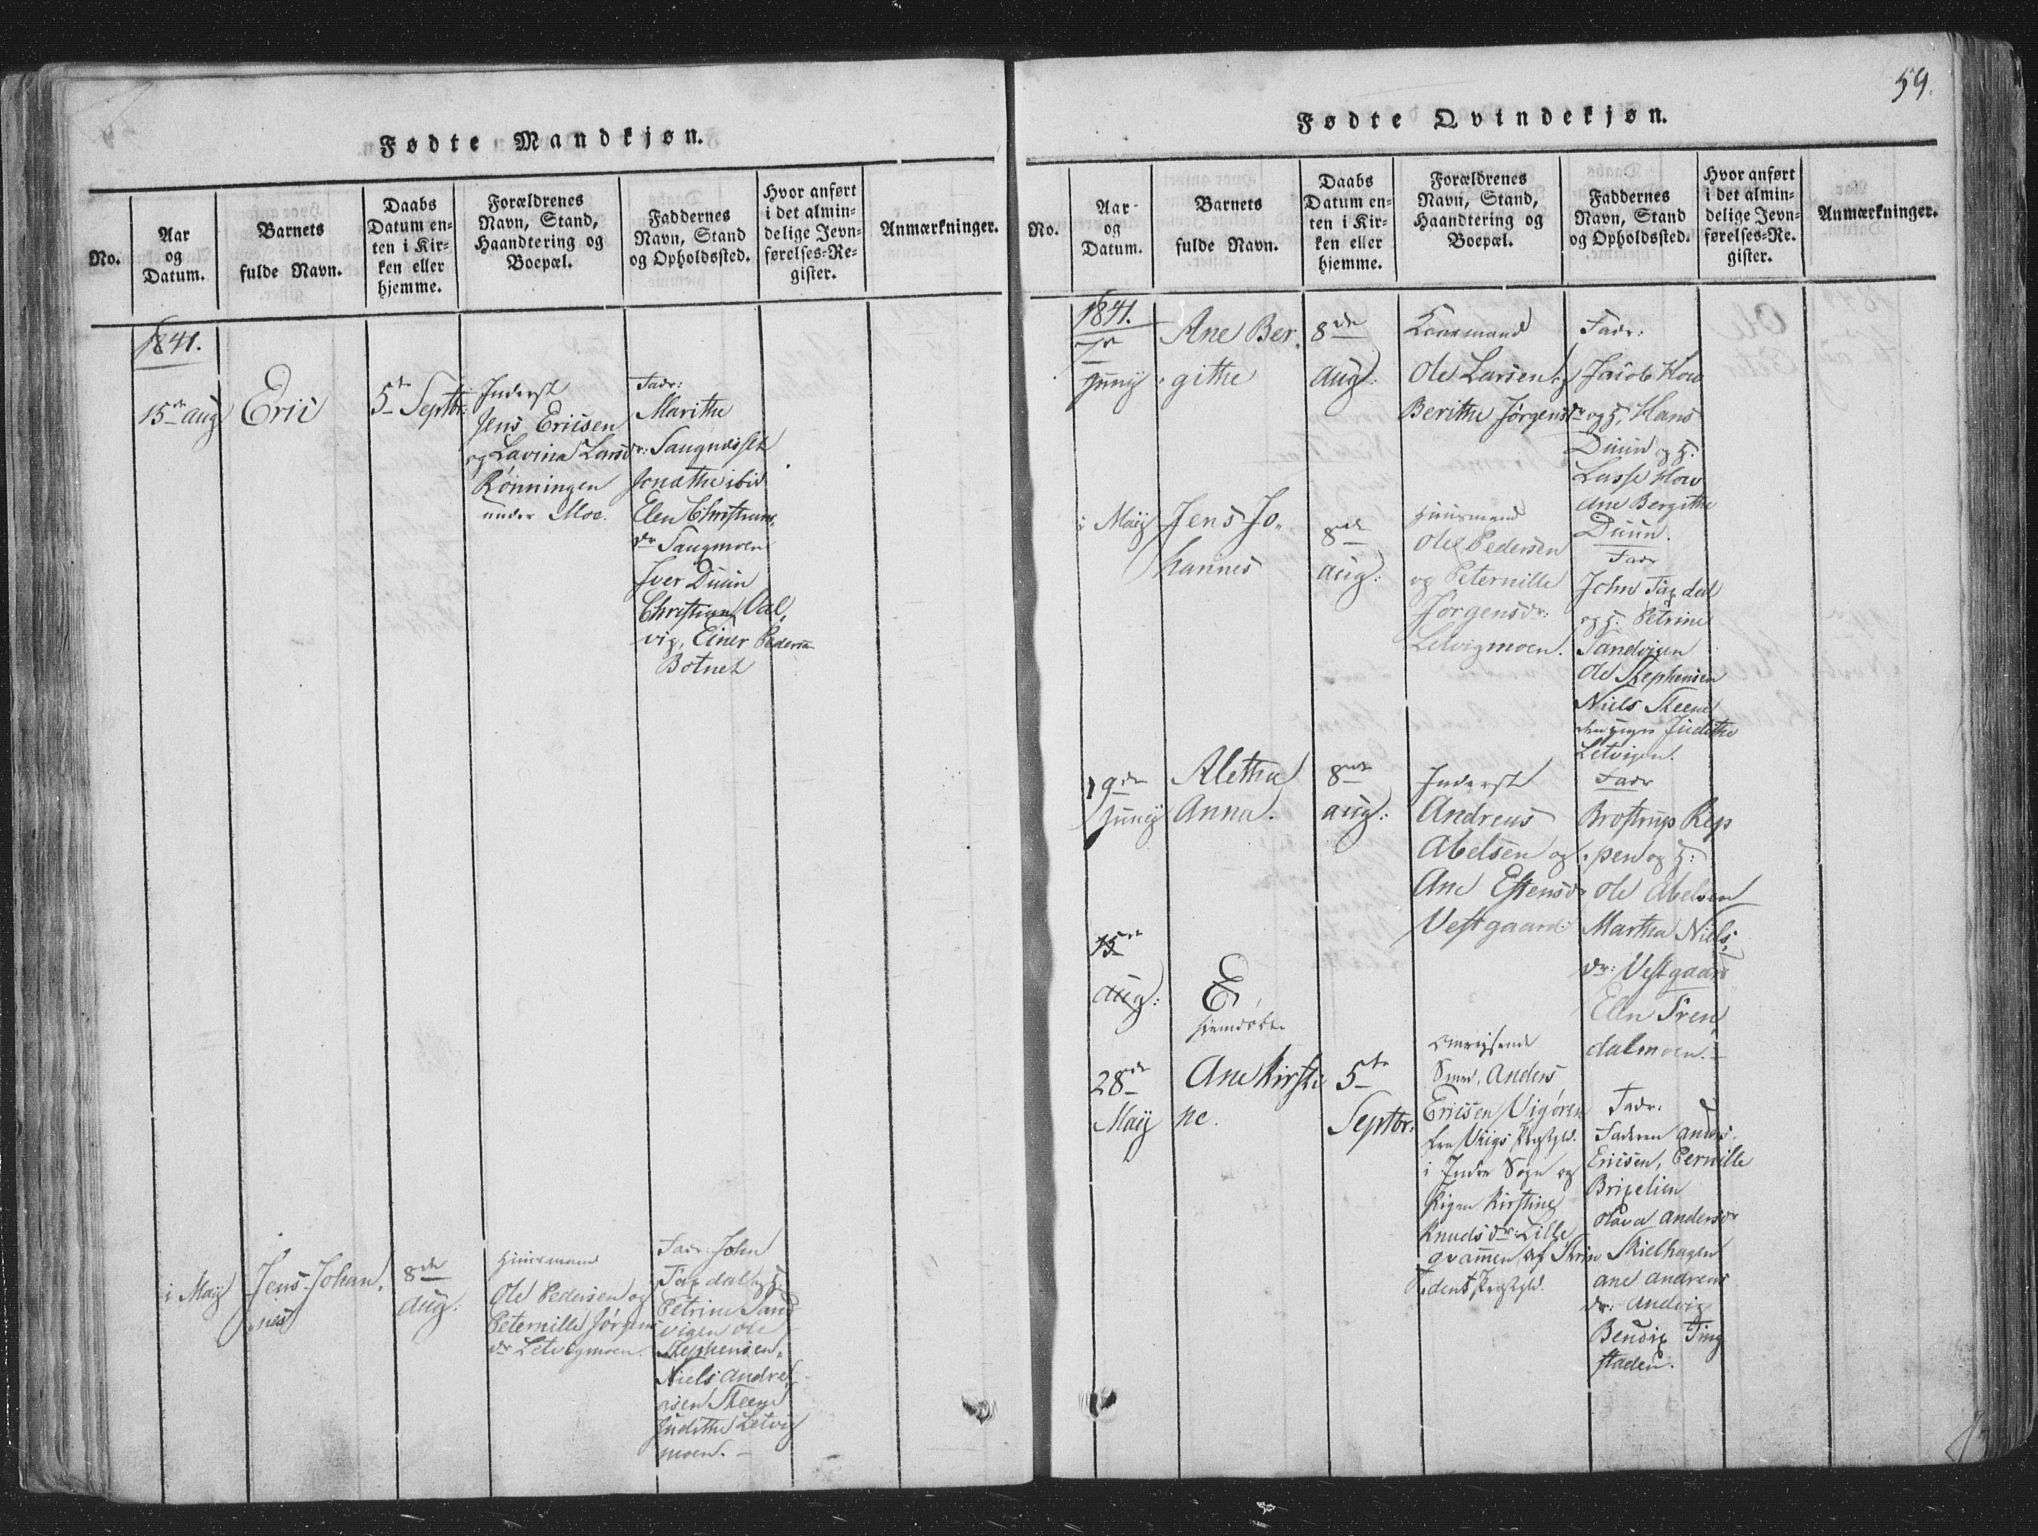 59.
Fødte Mandkjøn.
No.
Aar
og
Datum.
Barnets
fulde Navn.
Daabs
Datum en-
ten i Kir-
ken eller
hjemme.
Forældrenes
Navn, Stand,
Haandtering og
Boepæl.
Faddernes
Navn, Stand
og Opholdssted.
Hvor anført
i det almin-
delige Jevn-
førelses-Re-
gister.
Anmærkninger.
1841.
15de aug
Eric
5te Septbr.
Inderst
Jens Ericsen
og Lavina Larsdr:
Rönningen
under Moe.
Fadr:
Marithe
Saugnesset
Jonathe ibid
Elen Christians
dr Saugmoen
Iver Duun
Christian Val,
vig, Einer Pedersen
Botnet
i Maij
Jens Johan,
nes
8de
aug:
Huusmand
Ole Pedersen og
Peternille Jørgens
dr Letvigmoen.
Fadr: John
Tapdal og H:
Petrine Sand
vigen Ole
Stephensen,
Niels Andre,
asen Steene
Judithe Letvig
moen.
Fødte Qvindekjøn.
No.
Aar
og
Datum.
Barnets
fulde Navn.
Daabs
Datum en-
ten i Kir-
ken eller
hjemme.
Forældrenes
Navn, Stand,
Haandtering og
Boepæl.
Faddernes
Navn, Stand
og Opholdssted.
Hvor anført
i det almin-
delige Jevn-
førelses-Re-
gister.
Anmærkninger.
1841.
7de
Junij
Ane Ber,
githe
8de
aug:
Ole Larsen og
Berithe Jørgensdr
Fadr:
Jacob How
og H, Hans
Duun og H.
Lasse How
Ane Bergithe
Duun.
i Maij
Jens Jo,
hannes
8de
aug:
Huusmand
Ole Pedersen
og Peternille
Jørgensdr:
Letvigmoen.
Fadr
John Tapdal
og H: Petrine
Sandvigen
Ole Stephensen
Niels Steene
Judithe
Letvigen.
19de
Junij
Aletha
Anna.
8de
aug:
Inderst
Andreas
Abelsen og
Ane Estensdr
Vestgaard.
Fadr
Brostrup Rep
pen og H:
Ole Abelsen
Martha Niels,
dr: Vestgaard
Elen Tren,
dalmoen.
15de
aug:
E
hjemdøbt
28de
Maij
Ane Kirsti
ne.
5te
Septbr:
Omreisende
Smed, Anders
Ericsen Vigøren
fra Viigs Præstgld.
i Indre Sogn og
Pigen Kirstine
Knudsdr: Lille
qvammen af
Præstgld.
Fadr:
Faderen Anders
Ericsen, Pernille
Brixelien
Olava Andersdr
Skielhagen
Ane Andreas
dr: Andvig
Bendix Ting
staden.